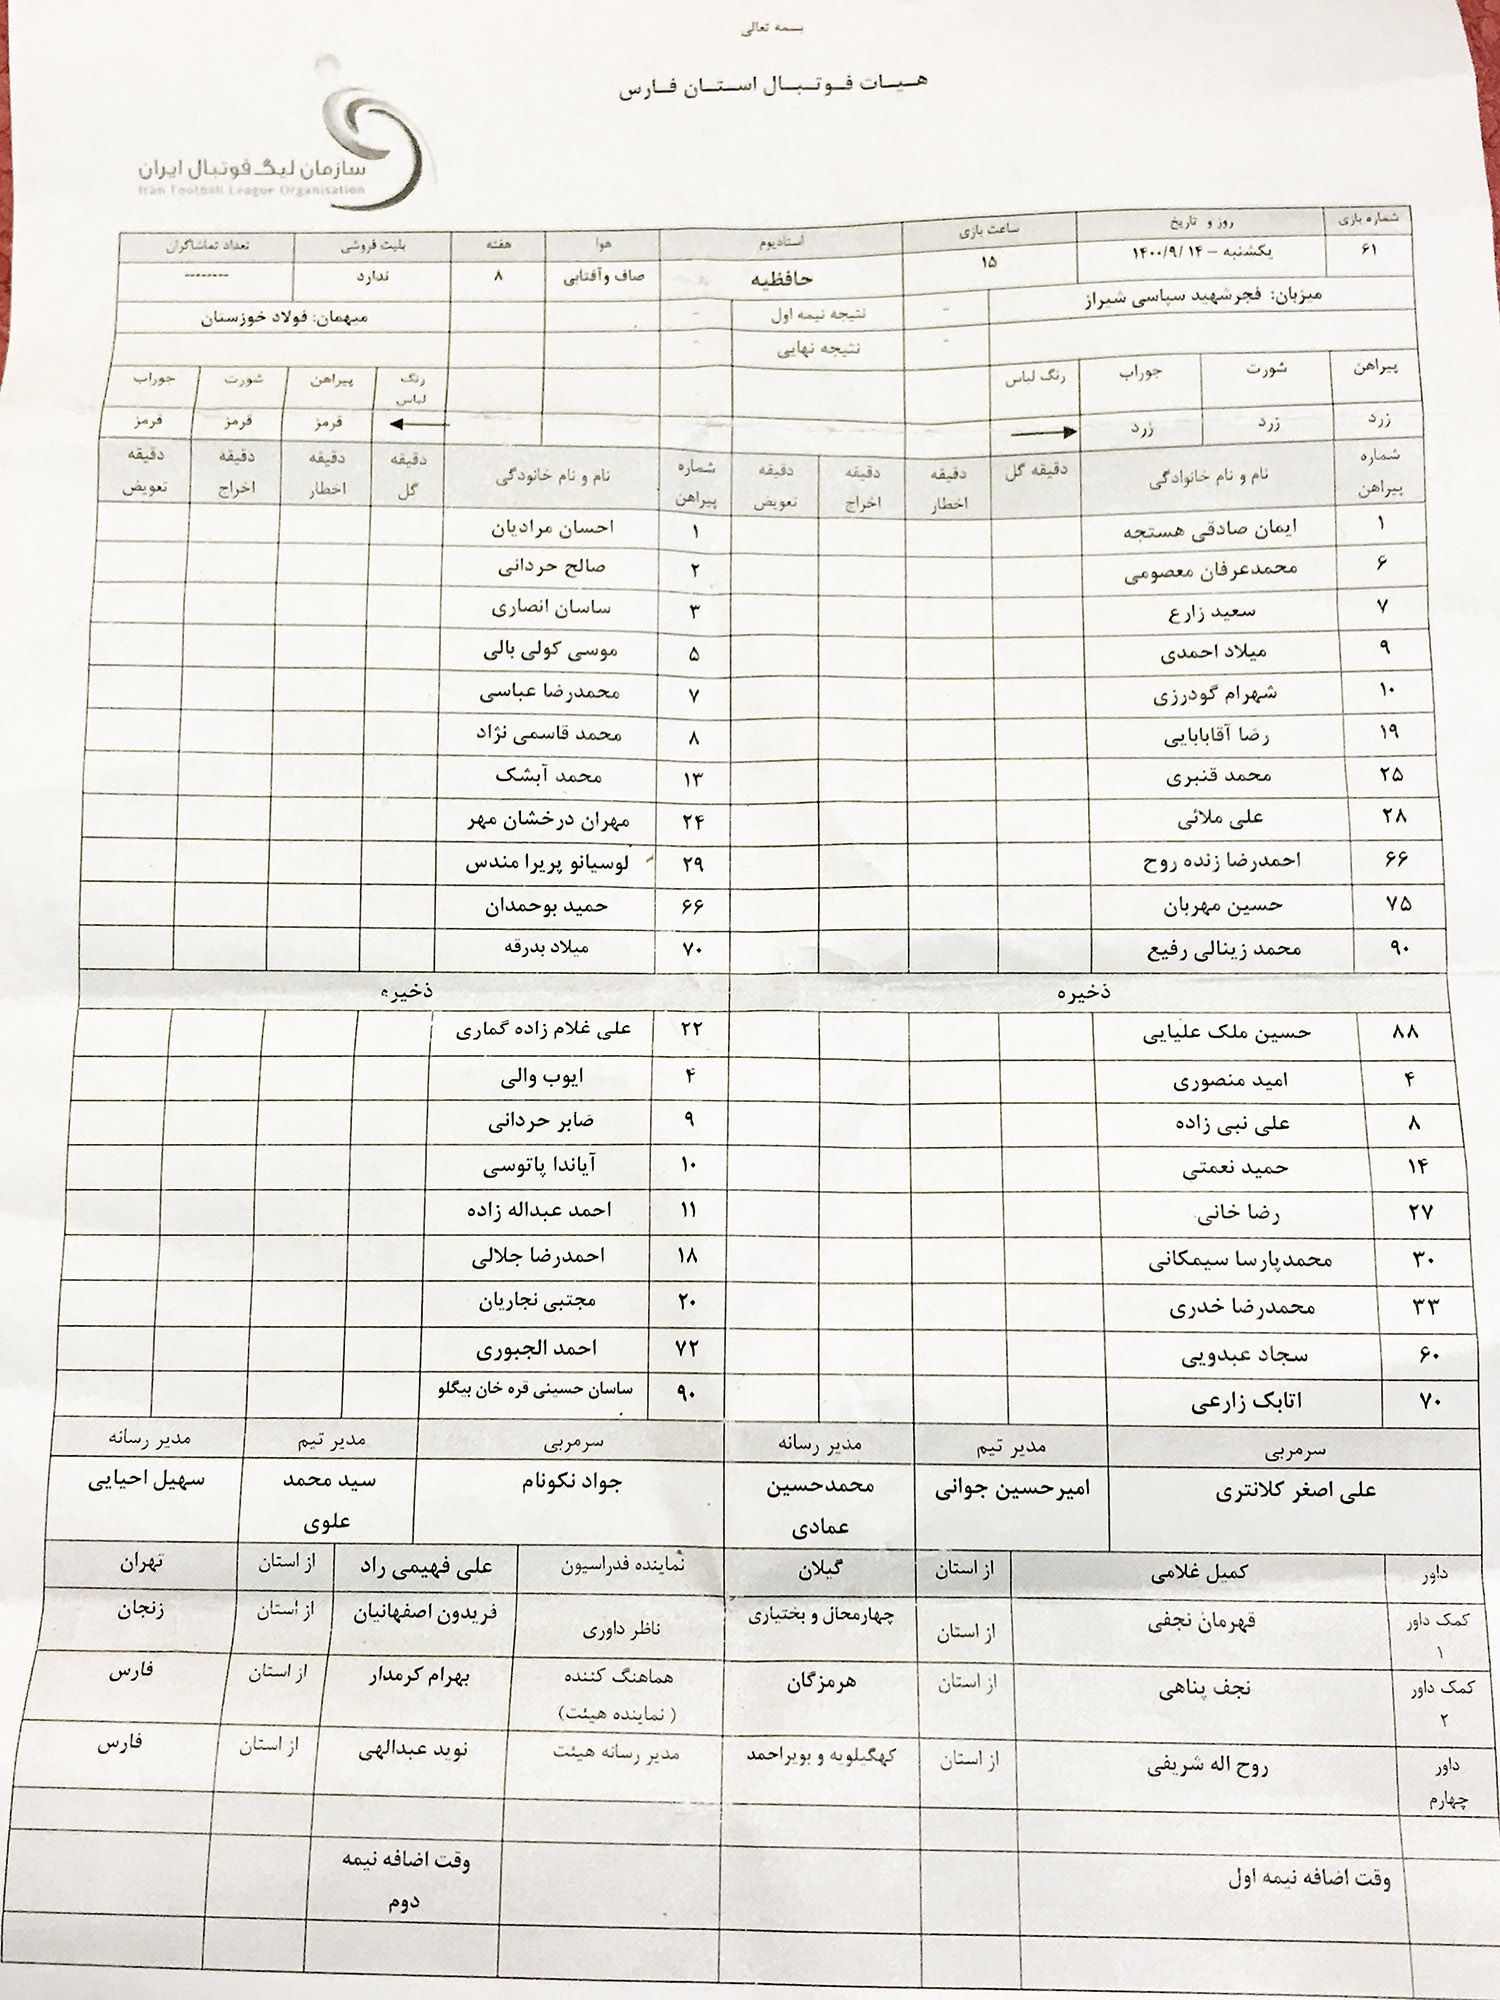 بسمه تعالی
هیات فوتبال استان فارس
سازمان لیگ فوتبال ایران
Iran Football League Organisation
شماره بازی روز و تاریخ ساعت بازی استادیوم هوا هفته بلیت فروشی تعداد تماشاگران
۶۱ یکشنبه – ۱۴۰۰/۹/۱۴ ۱۵ حافظیه صاف وآفتابی ۸ ندارد --------
میزبان: فجرشهید سپاسی شیراز - نتیجه نیمه اول - میهمان: فولاد خوزستان
- نتیجه نهایی -
پیراهن شورت جوراب رنگ لباس رنگ لباس پیراهن شورت جوراب
زرد زرد زرد قرمز قرمز قرمز
شماره پیراهن نام و نام خانوادگی دقیقه گل دقیقه اخطار دقیقه اخراج دقیقه تعویض شماره پیراهن نام و نام خانودگی دقیقه گل دقیقه اخطار دقیقه اخراج دقیقه تعویض
۱ ایمان صادقی هستجه ۱ احسان مرادیان
۶ محمدعرفان معصومی ۲ صالح حردانی
۷ سعید زارع ۳ ساسان انصاری
۹ میلاد احمدی ۵ موسی کولی بالی
۱۰ شهرام گودرزی ۷ محمدرضا عباسی
۱۹ رضا آقابابایی ۸ محمد قاسمی نژاد
۲۵ محمد قنبری ۱۳ محمد آبشک
۲۸ علی ملائی ۲۴ مهران درخشان مهر
۶۶ احمدرضا زنده روح ۲۹ لوسیانو پریرا مندس
۷۵ حسین مهربان ۶۶ حمید بوحمدان
۹۰ محمد زینالی رفیع ۷۰ میلاد بدرقه
ذخیره ذخیره
۸۸ حسین ملک علیایی ۲۲ علی غلام زاده گماری
۴ امید منصوری ۴ ایوب والی
۸ علی نبی زاده ۹ صابر حردانی
۱۴ حمید نعمتی ۱۰ آیاندا پاتوسی
۲۷ رضا خانی ۱۱ احمد عبداله زاده
۳۰ محمدپارسا سیمکانی ۱۸ احمدرضا جلالی
۳۳ محمدرضا خدری ۲۰ مجتبی نجاریان
۶۰ سجاد عبدویی ۷۲ احمد الجبوری
۷۰ اتابک زارعی ۹۰ ساسان حسینی قره خان بیگلو
سرمربی مدیر تیم مدیر رسانه سرمربی مدیر تیم مدیر رسانه
علی اصغر کلانتری امیرحسین جوانی محمدحسین عمادی جواد نکونام سید محمد علوی سهیل احیایی
داور کمیل غلامی از استان گیلان نماینده فدراسیون علی فهیمی راد از استان تهران
کمک داور ۱ قهرمان نجفی از استان چهارمحال و بختیاری ناظر داوری فریدون اصفهانیان از استان زنجان
کمک داور ۲ نجف پناهی از استان هرمزگان هماهنگ کننده (نماینده هیئت) بهرام کرمدار از استان فارس
داور چهارم روح اله شریفی از استان کهگیلویه و بویراحمد مدیر رسانه هیئت نوید عبدالهی از استان فارس
وقت اضافه نیمه اول وقت اضافه نیمه دوم